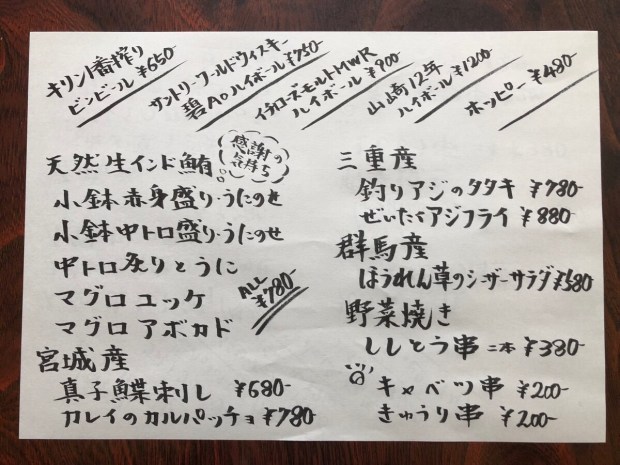 キリン一番搾り
ビンビール ¥650-
サントリーワールドウィスキー
碧Aoハイボール ¥750-
イチローズモルトMWR
ハイボール ¥900-
山崎12年
ハイボール ¥1200-
ホッピー ¥480-
天然生インド鮪
感謝の
気持ち
小鉢赤身盛り・うにのせ
小鉢中トロ盛り・うにのせ
中トロ炙りとうに
マグロユッケ
マグロアボカド
ALL
¥780-
宮城産
真子鰈刺し ¥680-
カレイのカルパッチョ ¥780-
三重産
釣りアジのタタキ ¥780-
ぜいたくアジフライ ¥880-
群馬産
ほうれん草のシーザーサラダ ¥580
野菜焼き
ししとう串 二本 ¥380-
キャベツ串 ¥200-
きゅうり串 ¥200-